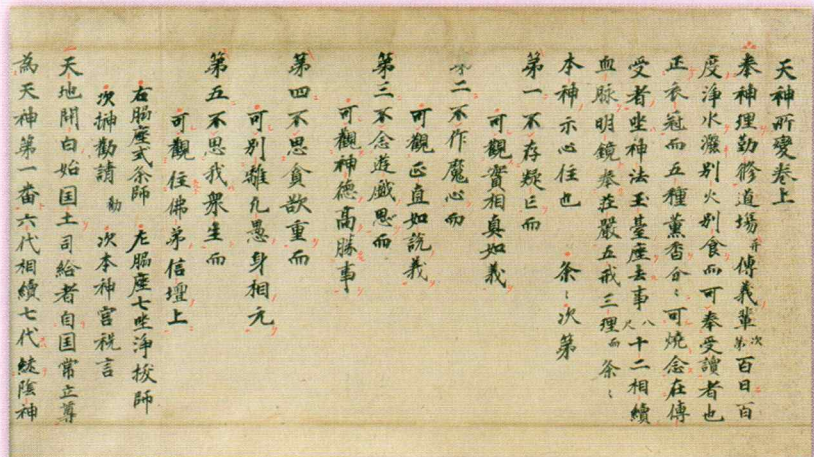 天神所変巻上
奉神理勤修道場并傳義輩次第百日百
度浄水灑別火別食而可奉受讀者也
正衣冠而五種薫香分〻可燒念在傳
受者坐神法玉臺座去事八尺十二相續
血脉明鏡奉荘嚴五戒三理而条〻
本神示心住也　条〻次第
第一不存疑㠯而
可觀實相真如義
第二不作魔心而
可觀正直如説義
第三不念遊戯思而
可觀神徳高勝事
第四不思貪欲重而
可別離凡愚身相元
第五不思我衆生而
可觀住佛弟信壇上
右脇座式条師　左脇座七坐浄拔師
次捧勸請　次本神宮祝言
天地開白始国土司給者自国常立尊
為天神第一番六代相續七代陰神